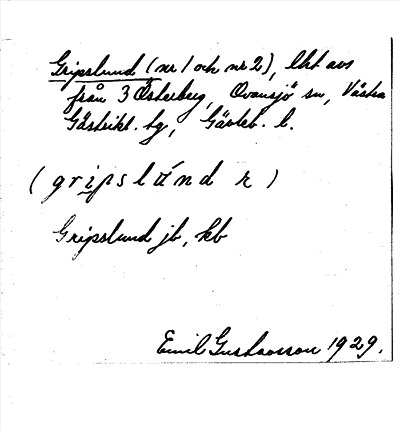 Gripslund (nr 1 och nr 2), lht avs
från 3 Österberg, Ovansjö sn, Västra
Gästrikl. tg, Gävleb. l.
(gripslánd r)
Gripslund jb, kb
Emil Gustavsson 1929.